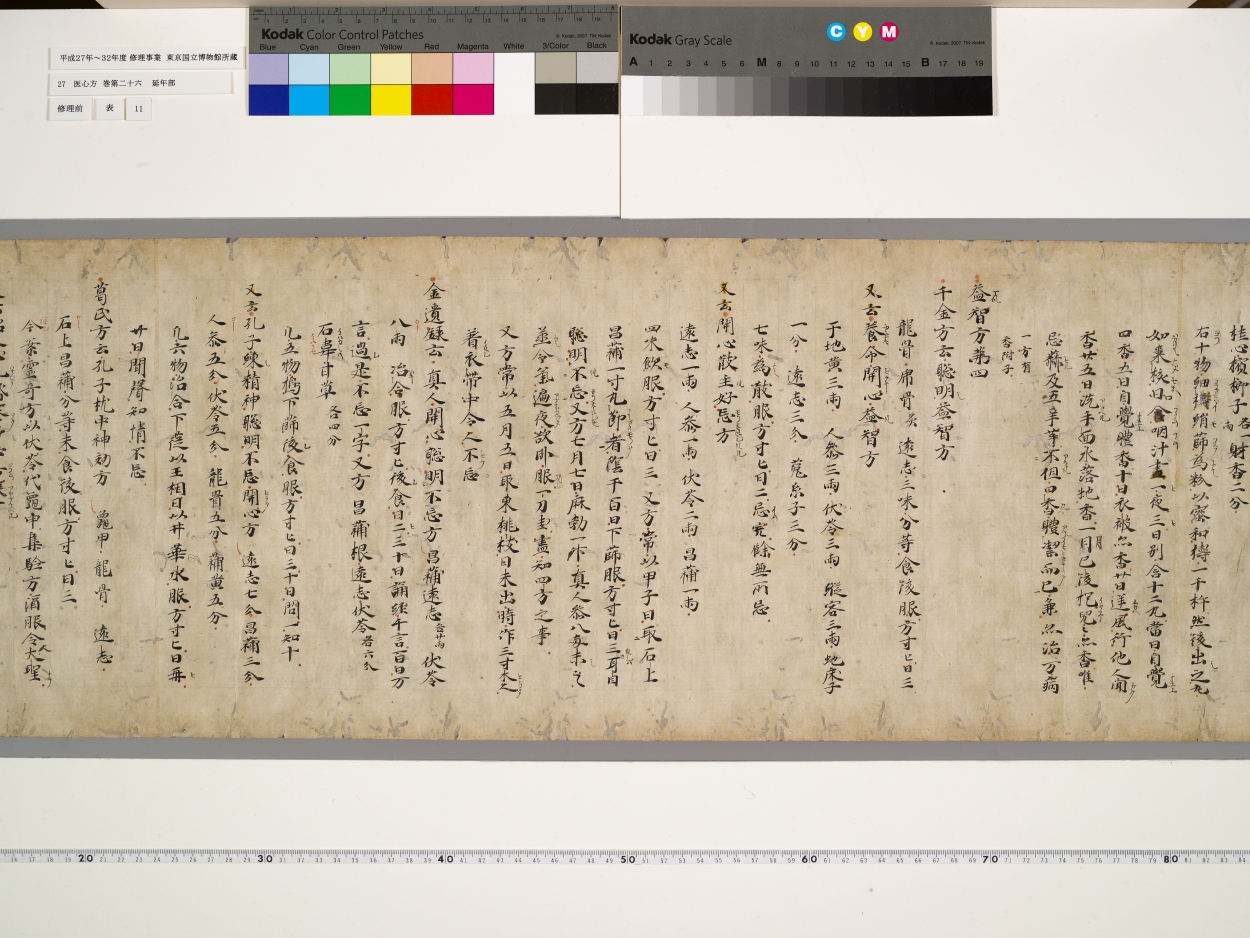 平成27年～32年度 修理事業 東京国立博物館所蔵
27 医心方 巻第二十六 延年部
修理前 表 11
Kodak Color Control Patches
Blue Cyan Green Yellow Red Magenta White 3/Color Black
Kodak Gray Scale
C Y M
A 1 2 3 4 5 6 M 8 9 10 11 12 13 14 15 B 17 18 19
桂心 檳榔子 各一兩 財香二分
右十物細擣絹篩為粉以蜜和擣一千杵然後出之丸
如棗核口含咽汁晝一夜三日別含十二丸當日自覺
口香五日自覺體香十日衣被亦香廿日逆風行他人聞
香廿五日洗手面水落地香一月已後抱兒亦香唯
忌蒜及五辛等不但口香體潔而已兼亦治万病
一方有
香附子
益智方第四
千金方云聰明益智方
龍骨 虎骨炙 遠志三味分等食後服方寸匕日三
又云養命開心益智方
干地黄三兩 人參三兩 伏苓三兩 蹤容三兩 地床子
一分 遠志三分 菟糸子三分
七味為散服方寸匕日二忌宍餘無所忌
又云開心散主好忘方
遠志一兩 人參一兩 伏苓二兩 昌蒱一兩
四味飲服方寸匕日三 又方常以甲子日取石上
昌蒱一寸九節者陰干百日下篩服方寸匕日三耳目
聰明不忘又方七月七日麻勃一升真人參八分末之
蒸令氣遍夜欲卧服一刀圭盡知四方之事
又方常以五月五日取東桃枝日未出時作三寸木人
着衣帶中令人不忘
金遺録云真人開心聰明不忘方 昌蒱遠志 各廿兩 伏苓
八兩 冶合服方寸匕後食日二三十日誦經千言百日万
言過是不忘一字又方 昌蒱根遠志伏苓各六分
石韋甘草 各四分
凡五物搗下篩後食服方寸匕日三十日問一知十
又云孔子練精神聰明不忘開心方 遠志七分昌蒱三分
人參五分 伏苓五分 龍骨五分 蒲黄五分
凡六物治合下篩以王相日以井華水服方寸匕日再
廿日聞聲知情不忘
葛氏方云孔子枕中神効方 龜甲 龍骨 遠志
石上昌蒱分等末食後服方寸匕日三
今案靈奇方以伏苓代龜甲集驗方酒服令人大聖